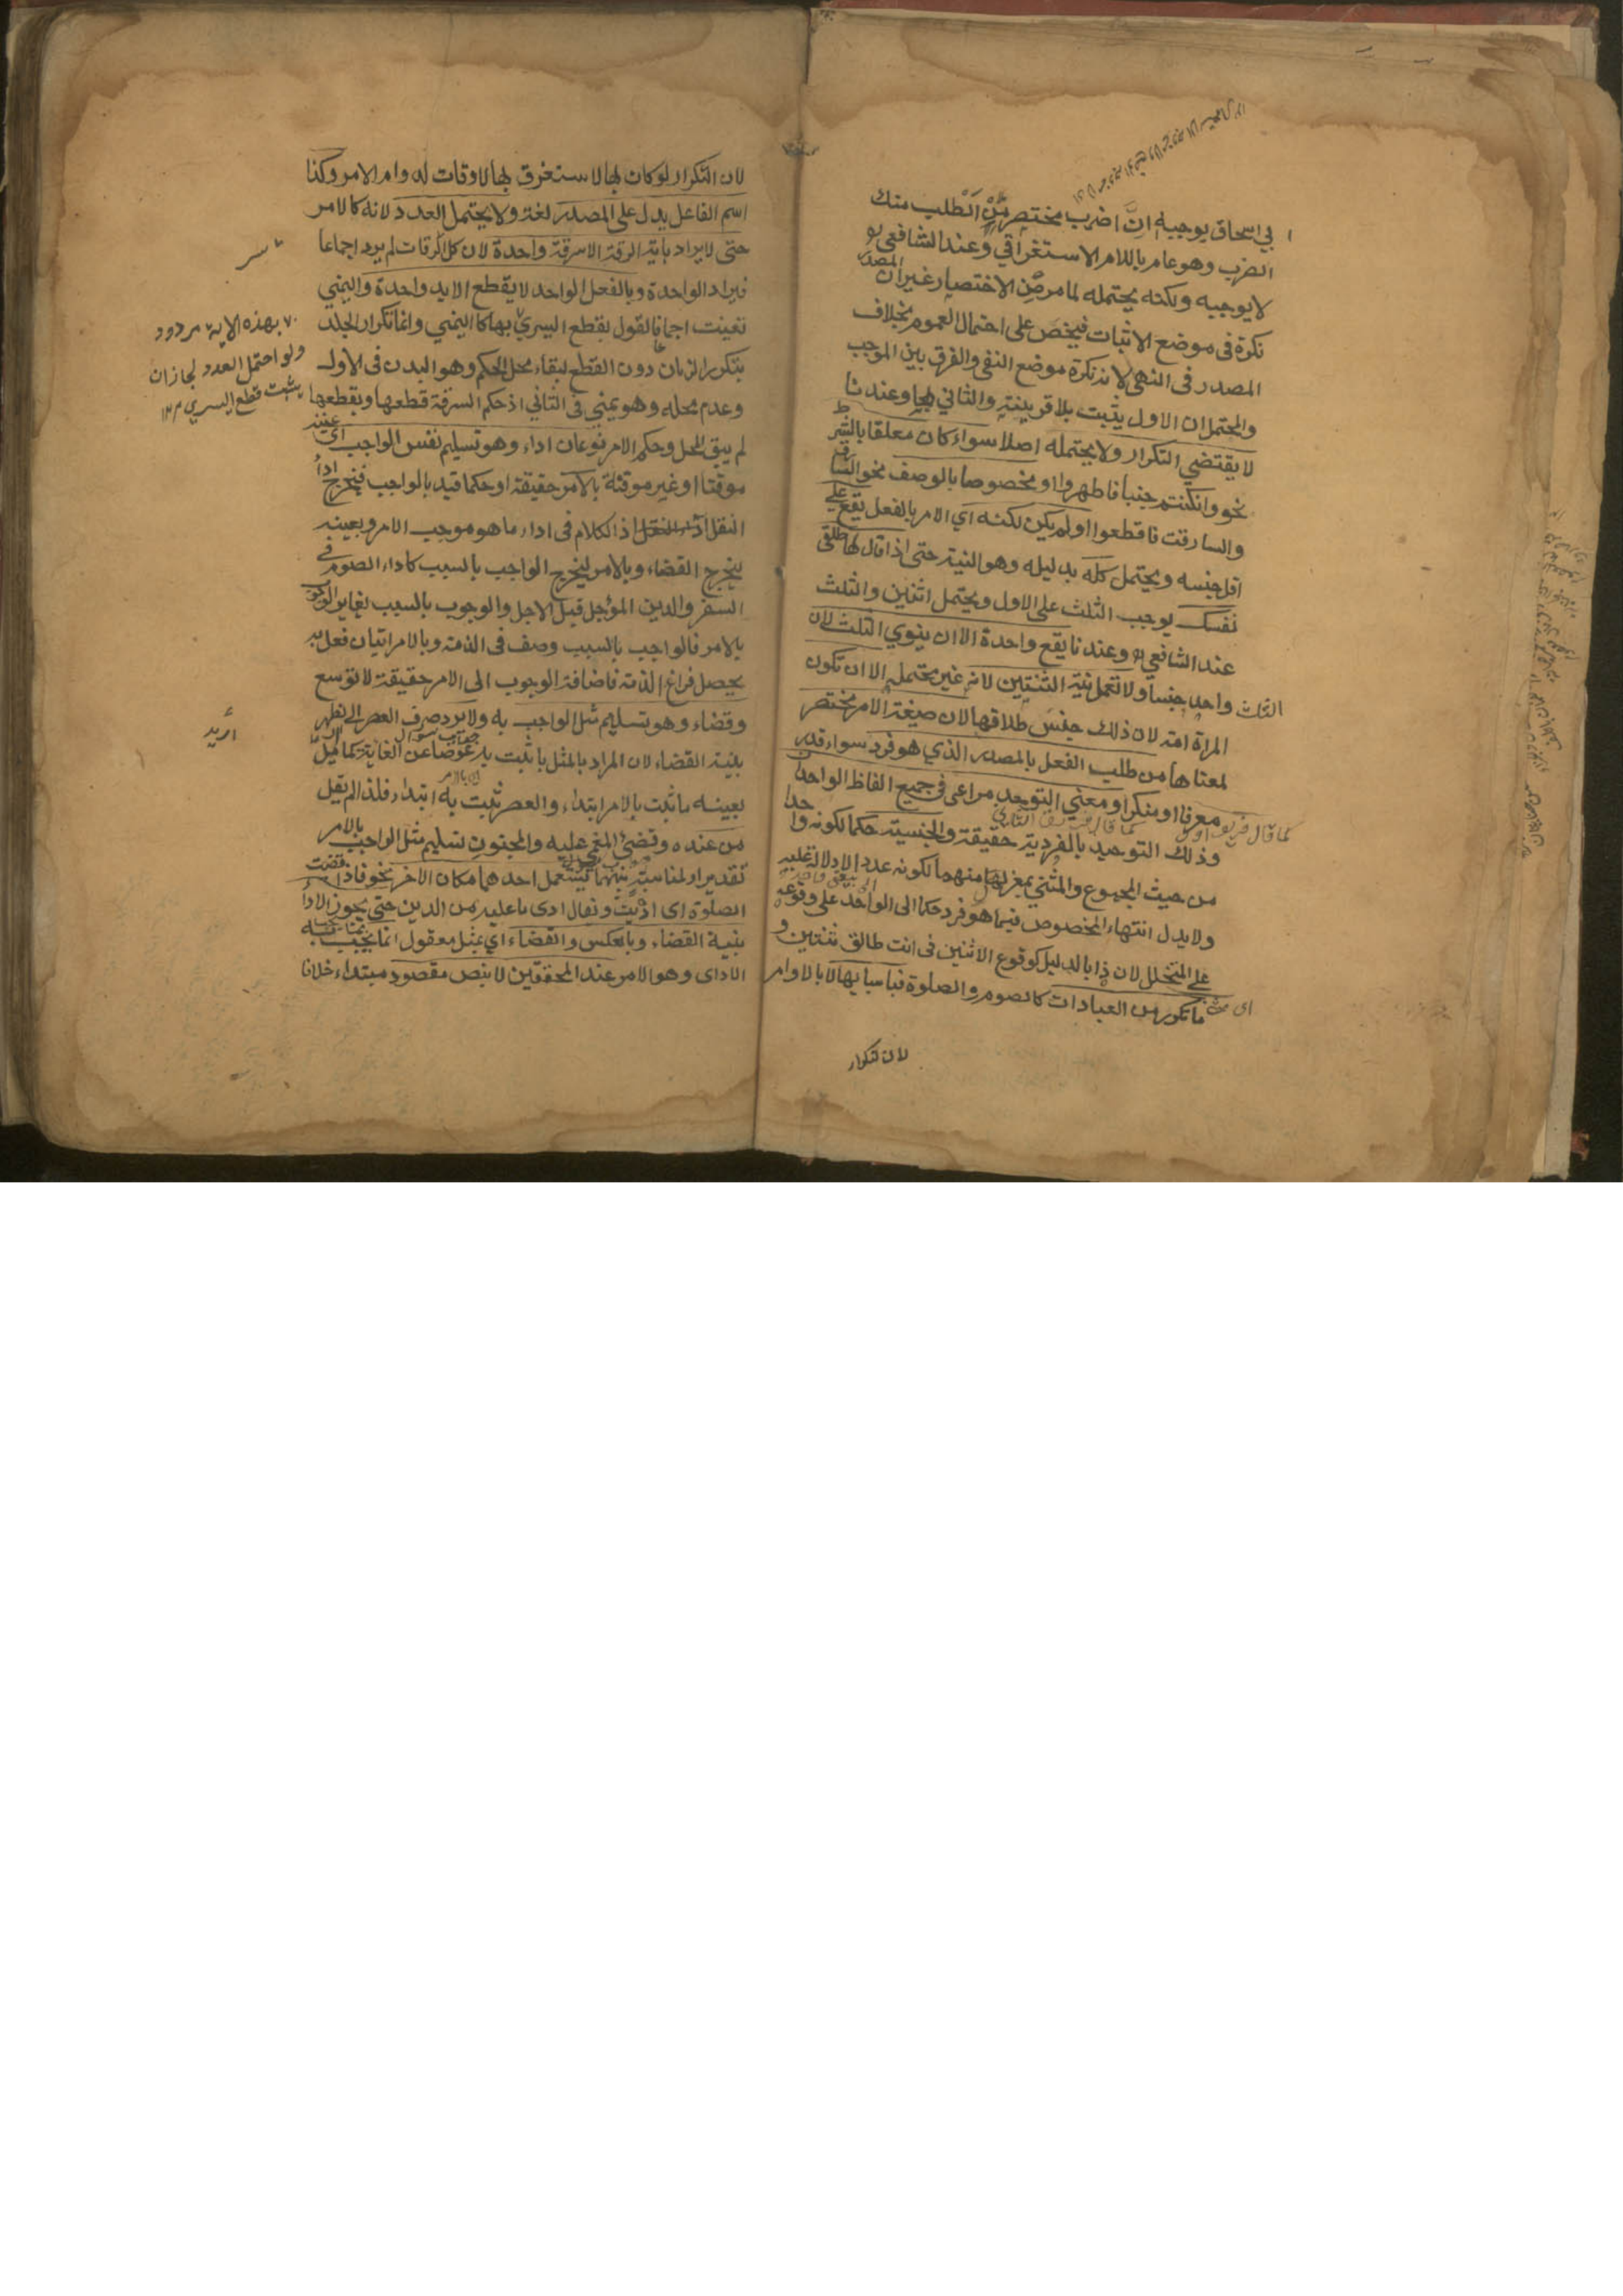 بي اسحاق يوجبه ان اضرب مختصر من اطلب منك
الضرب وهو عام باللام الاستغراقي وعند الشافعي
لا يوجبه ولكنه يحتمله لما مر من الاختصار غير ان المصدر
نكرة في موضع الاثبات فيخص على احتمال العموم بخلاف
المصدر في النهي لانه نكرة موضع النفي والفرق بين الموجب
والمحتمل ان الاول يثبت بلا قرينة والثاني بها وعندنا
لا يقتضي التكرار ولا يحتمله اصلا سواء كان معلقا بالشرط
نحو وان كنتم جنبا فاطهروا او مخصوصا بالوصف نحو السارق
والسارقة فاقطعوا او لم يكن لكنه اي الامر بالفعل يقع على
اقل جنسه ويحتمل كله بدليله وهو النية حتى اذا قال لها طلقي
نفسك يوجب الثلث على الاول ويحتمل اثنين والثلث
عند الشافعي وعندنا يقع واحدة الا ان ينوي الثلث لان
الثلث واحد جنسا ولا تعمل نية الثنتين لانه غير محتمله الا ان تكون
المراة امة لان ذلك جنس طلاقها لان صيغة الامر مختصر
لمعناها من طلب الفعل بالمصدر الذي هو فرد سواء قدر
معرفا او منكرا ومعنى التوحد مراعى في جميع الفاظ الواحدان
كما قال فريق اول
كما قال فريق الثاني
وذلك التوحيد بالفردية حقيقة والجنسية حكما لكونه واحدا
من حيث المجموع والمثنى بمعزل منهما لكونه عددا لا دلالة عليه
ولا يدل انتهاء الخصوص فيما هو فرد حكما الى الواحد على وقوعه
على المتخلل لان ذا بالدليل كوقوع الاثنين في انت طالق ثنتين و
ما تكرر من العبادات كالصوم والصلوة فباسبابها لا بالاوامر
لان التكرار
لان التكرار لو كان بها لاستغرق بها الاوقات لدوام الامر وكذا
اسم الفاعل يدل على المصدر لغة ولا يحتمل العدد لانه كالامر
حتى لا يراد باية السرقة الا سرقة واحدة لان كل السرقات لم يرد اجماعا
فيراد الواحدة وبالفعل الواحد لا يقطع الا يد واحدة واليمنى
تعينت اجماعا فالقول بقطع اليسرى بها كاليمنى وانما تكرار الجلد
بهذه الاية مردود
ولو احتمل العدد لجاز ان
يثبت قطع اليسرى ١٢
بتكرر الزنا دون القطع لبقاء محل الحكم وهو البدن في الاول
وعدم محله وهو يمنى في الثاني اذ حكم السرقة قطعها وبقطعها
لم يبق المحل وحكم الامر نوعان اداء وهو تسليم نفس الواجب اي عينه
موقتا او غير موقتة بالامر حقيقة او حكما قيد بالواجب فيخرج اداء
النفل اذ الكلام في اداء ما هو موجب الامر وبعينه
ليخرج القضاء وبالامر ليخرج الواجب بالسبب كاداء الصوم في
السفر والدين المؤجل قبل الاجل والوجوب بالسبب يغاير الوجوب
بالامر فالواجب بالسبب وصف في الذمة وبالامر اتيان فعل به
يحصل فراغ الذمة فاضافة الوجوب الى الامر حقيقة لا توسع
وقضاء وهو تسليم مثل الواجب به ولا يرد صرف العصر الى الظهر
اريد
جواب سوال
بنية القضاء لان المراد بالمثل ما ثبت بدء عوضا عن الغاية كما قيل
اي بالامر
بعينه ما ثبت بالامر ابتداء والعصر ثبت به ابتداء فلذا لم يقل
من عنده وقضى المغمى عليه والمجنون تسليم مثل الواجب بالامر
تقديرا ولمناسبة بينهما يستعمل احدهما مكان الاخر نحو فاذا قضيت
الصلوة اي اديت ويقال ادى ما عليه من الدين حتى يجوز الاداء
بنية القضاء وبالعكس والقضاء اي بمثل معقول انما يجب بما يجب به
الاداء وهو الامر عند المحققين لا بنص مقصود مبتداء خلافا